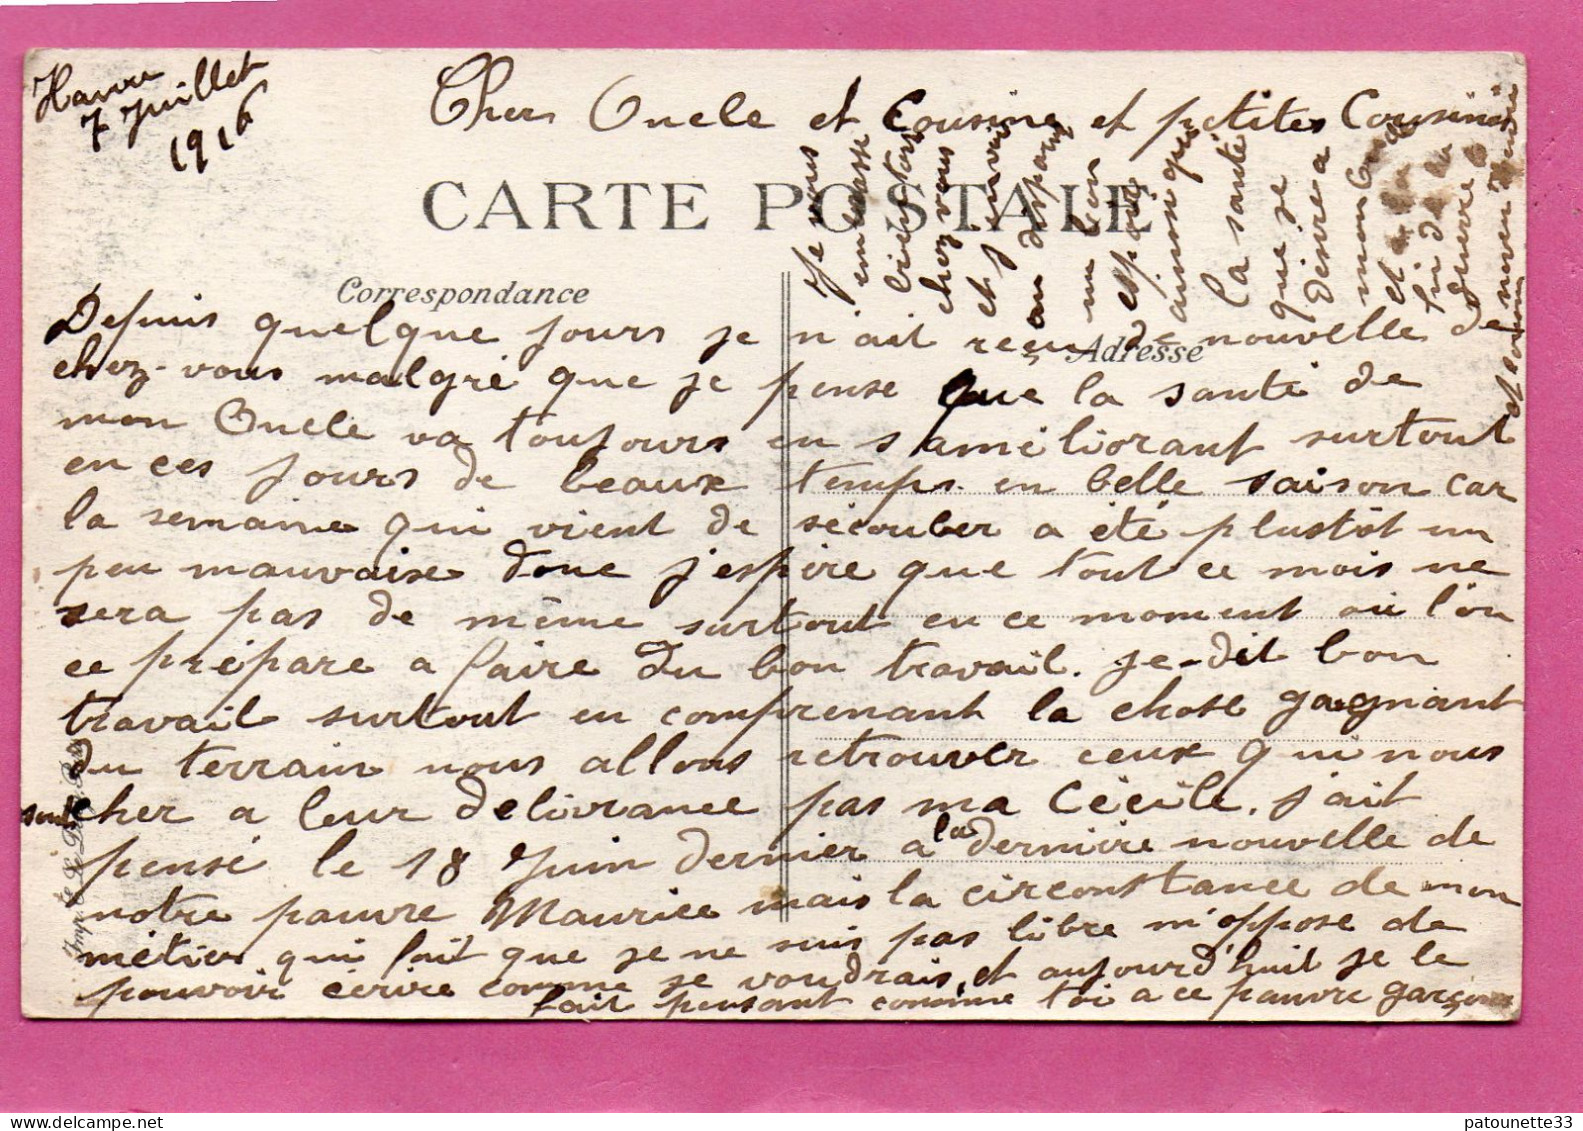 Havre
7 Juillet
1916
Chers Oncle et Cousine et petites Cousines
CARTE POSTALE
Correspondance
Adresse
Depuis quelque jours je n'ait reçu de nouvelle de
chez-vous malgré que je pense que la santé de
mon Oncle va toujours en s'améliorant surtout
en ces jours de beaux temps en belle saison car
la semaine qui vient de sécouler a été plustôt un
peu mauvaise donc j'espère que tout ce mois ne
sera pas de même surtout en ce moment où l'on
ce prépare a faire du bon travail. je-dit bon
travail surtout en comprenant la chose gagnant
du terrain nous allons retrouver ceux qui nous
sont cher a leur delivrance pas ma Cécile. j'ait
pensé le 18 Juin dernier a la dernière nouvelle de
notre pauvre Maurice mais la circonstance de mon
métier qui fait que je ne suis pas libre m'oppose de
pouvoir écrire comme je voudrais, et aujourd'huit je le
fait pensant comme toi a ce pauvre garçon
Je vous
embrasse
tous
chez vous
et j'envoi
au
un bon
espoir
ainsi que
la santé
que je
désire a
mon
et
fin de la
guerre